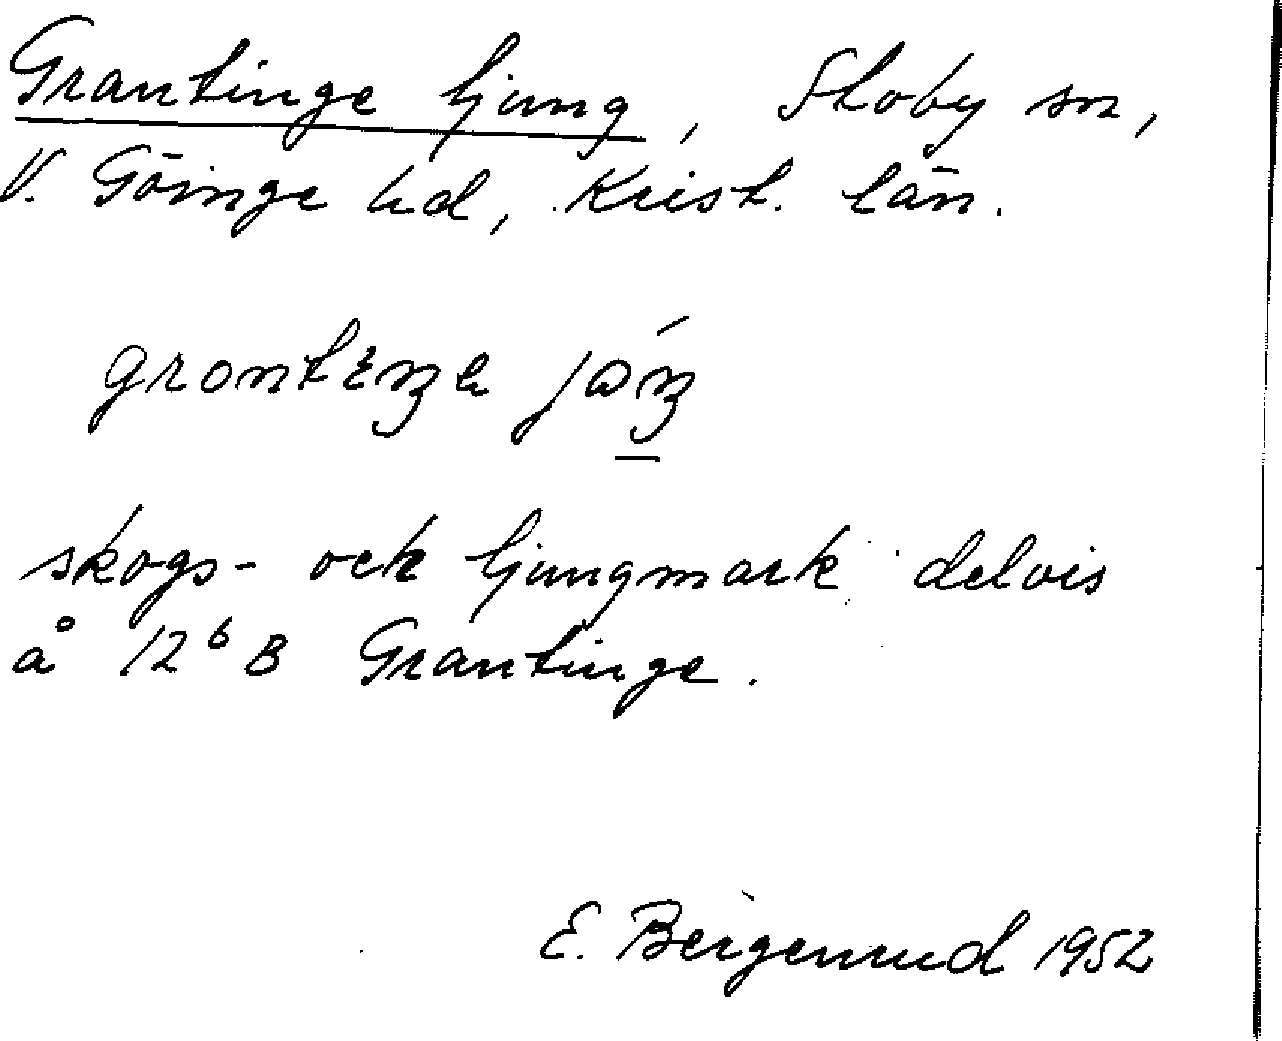 Grantinge ljung, Stoby sn,
V. Göinge hd, Krist. län.
grontɛŋə jɷ́ŋ
skogs- och ljungmark delvis
å 12⁶ B Grantinge.
E. Bergenrud 1952